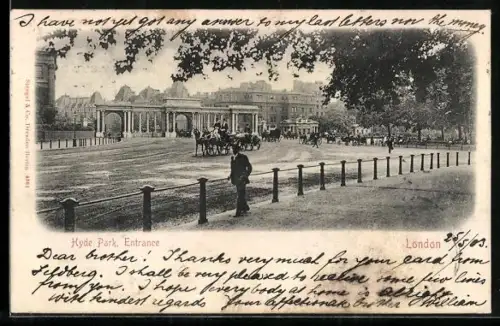 I have not yet got any answer to my last letters nor the money
Stengel & Co., Dresden
Hyde Park, Entrance
London
25/5/03.
Dear brother! Thanks very much for your card from
Feldberg. I shall be very pleased to receive some few lines
from you. I hope everybody at home is
with kindest regards your affectionate brother William